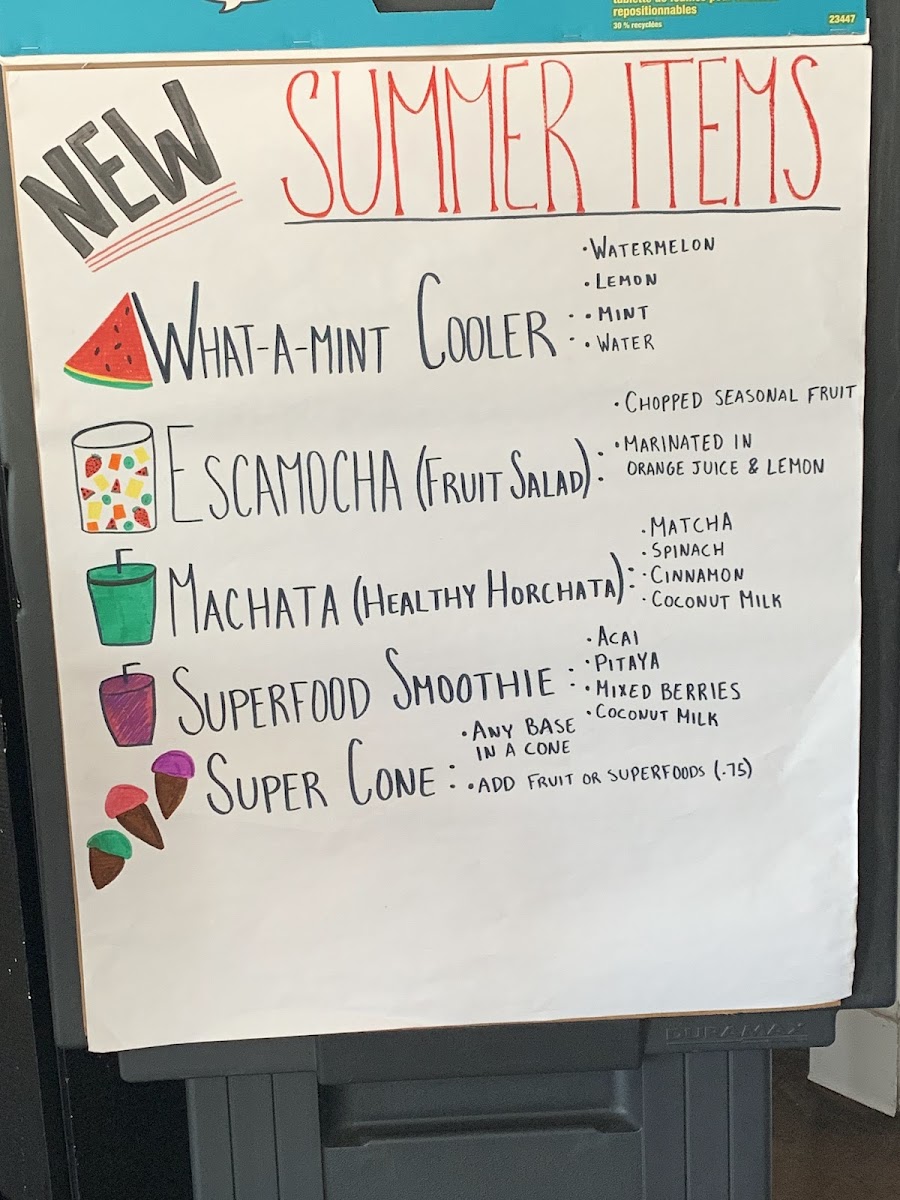 repositionnables
30 % recyclées
23447
NEW
SUMMER ITEMS
WHAT-A-MINT COOLER :
• WATERMELON
• LEMON
• MINT
• WATER
ESCAMOCHA (FRUIT SALAD) :
• CHOPPED SEASONAL FRUIT
• MARINATED IN
ORANGE JUICE & LEMON
MACHATA (HEALTHY HORCHATA) :
• MATCHA
• SPINACH
• CINNAMON
• COCONUT MILK
SUPERFOOD SMOOTHIE :
• ACAI
• PITAYA
• MIXED BERRIES
• COCONUT MILK
SUPER CONE :
• ANY BASE
IN A CONE
• ADD FRUIT OR SUPERFOODS (.75)
DURAMAX